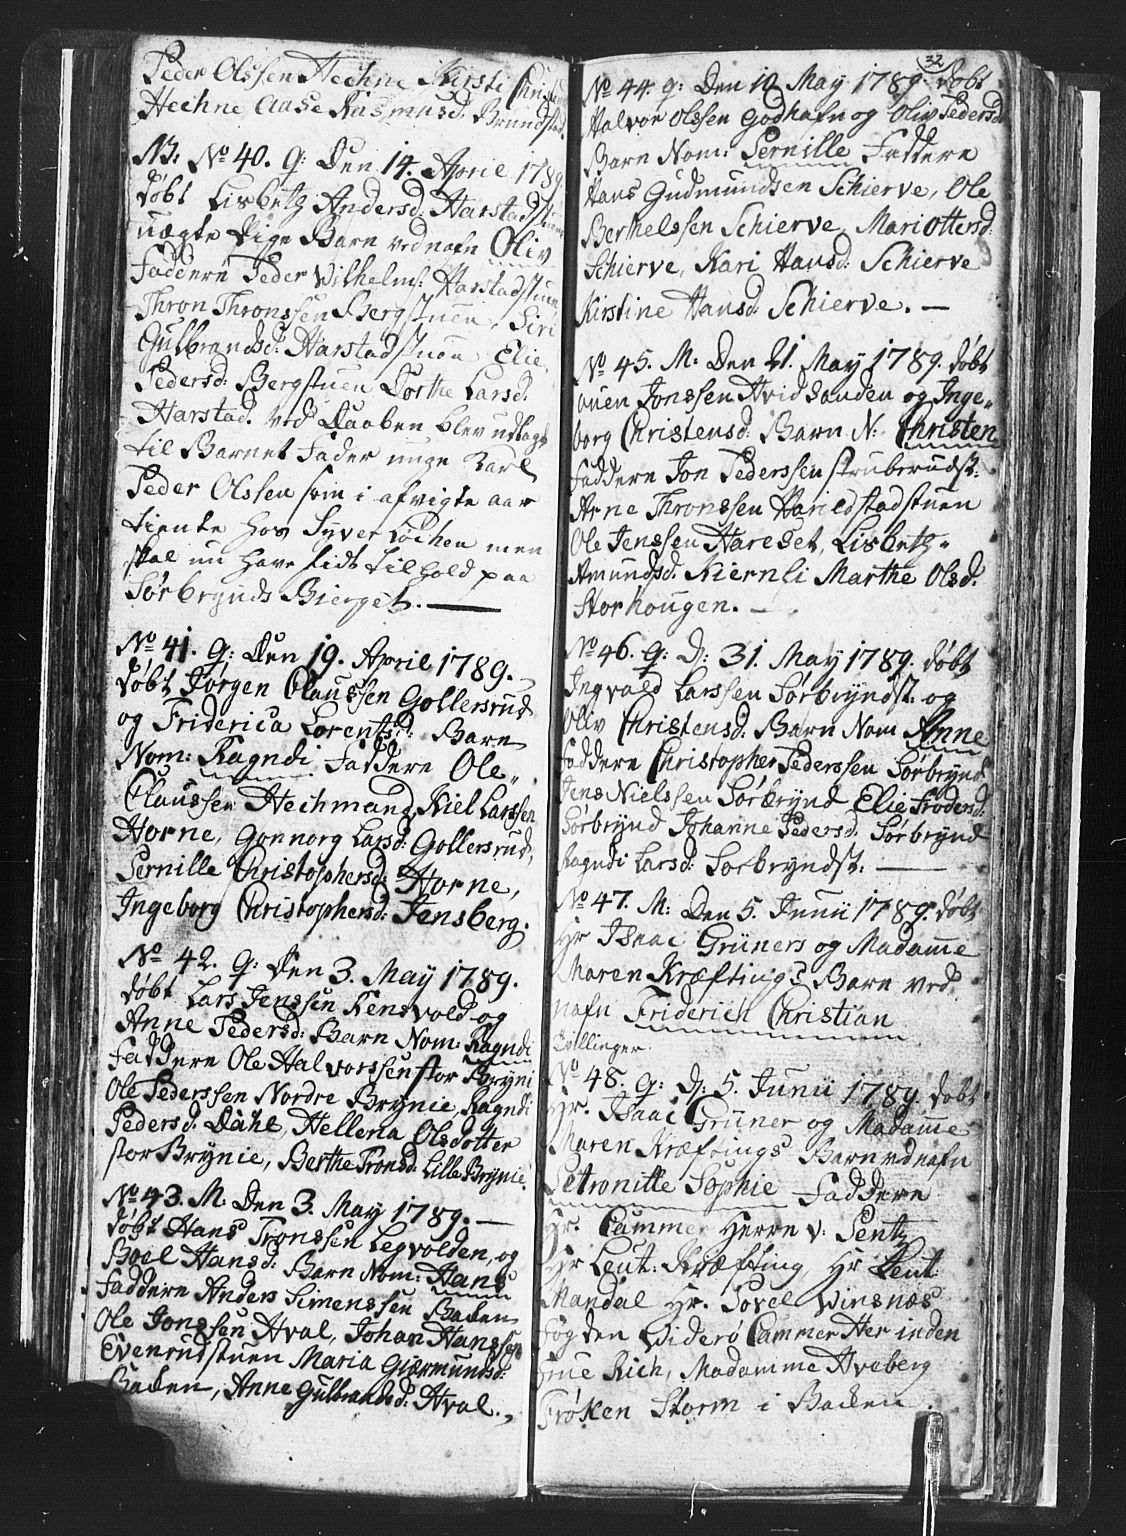 Peder Olssen Hechne Kirsti
Hechne Aase Rasmusd. Brundstad.
N3: No 40. q: Den 14. April 1789.
døbt Lisbeth Andersd. Harstadstuen
uægte Pige Barn ved nafn Oliv
Faddere Peder Wilhelms: Harstadstuen
Thron Thronssen Bergstuen, Siri
Gulbrandsd: Harstadstuen Elie
Pedersd: Bergstuen Dorthe Larsd.
Harstad. ved Daaben blev udlagt
til Barnet Fader unge Karl
Peder Olssen som i afvigte aar
tiente hos Syver Lochen men
skal nu have sidt tilhold paa
Sørbrynds Bierget.
No 41. q: Den 19. April 1789.
døbt Jørgen Claussen Gollersrud
og Friderica Lorentsd: Barn
Nom: Ragndi Faddere Ole
Claussen Hechmand, Kiel Larssen
Horne, Gonnorg Larsd: Gollersrud,
Pernille Christophersd: Horne,
Ingeborg Christophersd: Jensberg.
No 42. q: Den 3. May 1789.
døbt Lars Jenssen Kensvold og
Anne Pedersd: Barn Nom: Ragndi
Faddere Ole Halvorssen stor Bryni
Ole Pederssen Nordre Brynie, Ragndi
Pedersd. Dahl, Hellena Olsdotter
stor Brynie, Berthe Tronsd: Lille Brynie.
No 43. M: Den 3. May 1789.
døbt Hans Tronssen Legvolden, og
Boel Hansd: Barn Nom: Hans
Faddere Anders Simenssen Backen
Ole Jonssen Hval, Johan Hanssen
Evenrudstuen Maria Giærmunsd:
Backen, Anne Gulbrandsd: Hval.
32
No 44. q: Den 10 May 1789. døbt
Halvor Olssen Godhafn og Oliv Pedersd.
Barn Nom: Pernille Faddere
Hans Gudmundsen Schierve, Ole
Berthelssen Schierve, Mari Ottersd:
Schierve, Kari Hansd: Schierve
Kirstine Hansd: Schierve.
No 45. M: Den 21. May 1789. døbt
Iuen Jonssen Hvidsanden og Inge-
borg Christensd: Barn N: Christen
Faddere Jon Pederssen Struberudst:
Arne Thronssen Harildstadstuen
Ole Jenssen Hareset, Lisbeth
Amundsd. Kiernli Marthe Olsd.
Storhougen.
No 46. q: D: 31. May 1789. døbt
Ingvald Larssen Sørbryndst. og
Oliv Christensd. Barn Nom Anne
Faddere Christopher Pederssen Sørbrynd
Jens Nielssen Sørbrynd Elie Frodersd:
Sørbrynd Johanne Pedersd. Sørbrynd
Ragndi Larsd: Sorbryndst.
No 47. M: Den 5. Junii 1789. døbt
Hr Isaac Grüners og Madamme
Maren Kræftings Barn ved
nafn Friderich Christian
Tvillinger.
No 48. q: D: 5. Junii 1789. døbt
Hr. Isaac Grüner og Madamme
Maren Kræftings Barn ved nafn
Petronille Sophie Faddere
Hr. Cammer Herre v: Pentz
Hr Leut: Kræfting, Hr Leut:
Mandal Hr. Povel Winsnæs
Fogden Widerø Cammer Herinden
Frue Rich, Madamme Hveberg
Frøken Storm i Backen.